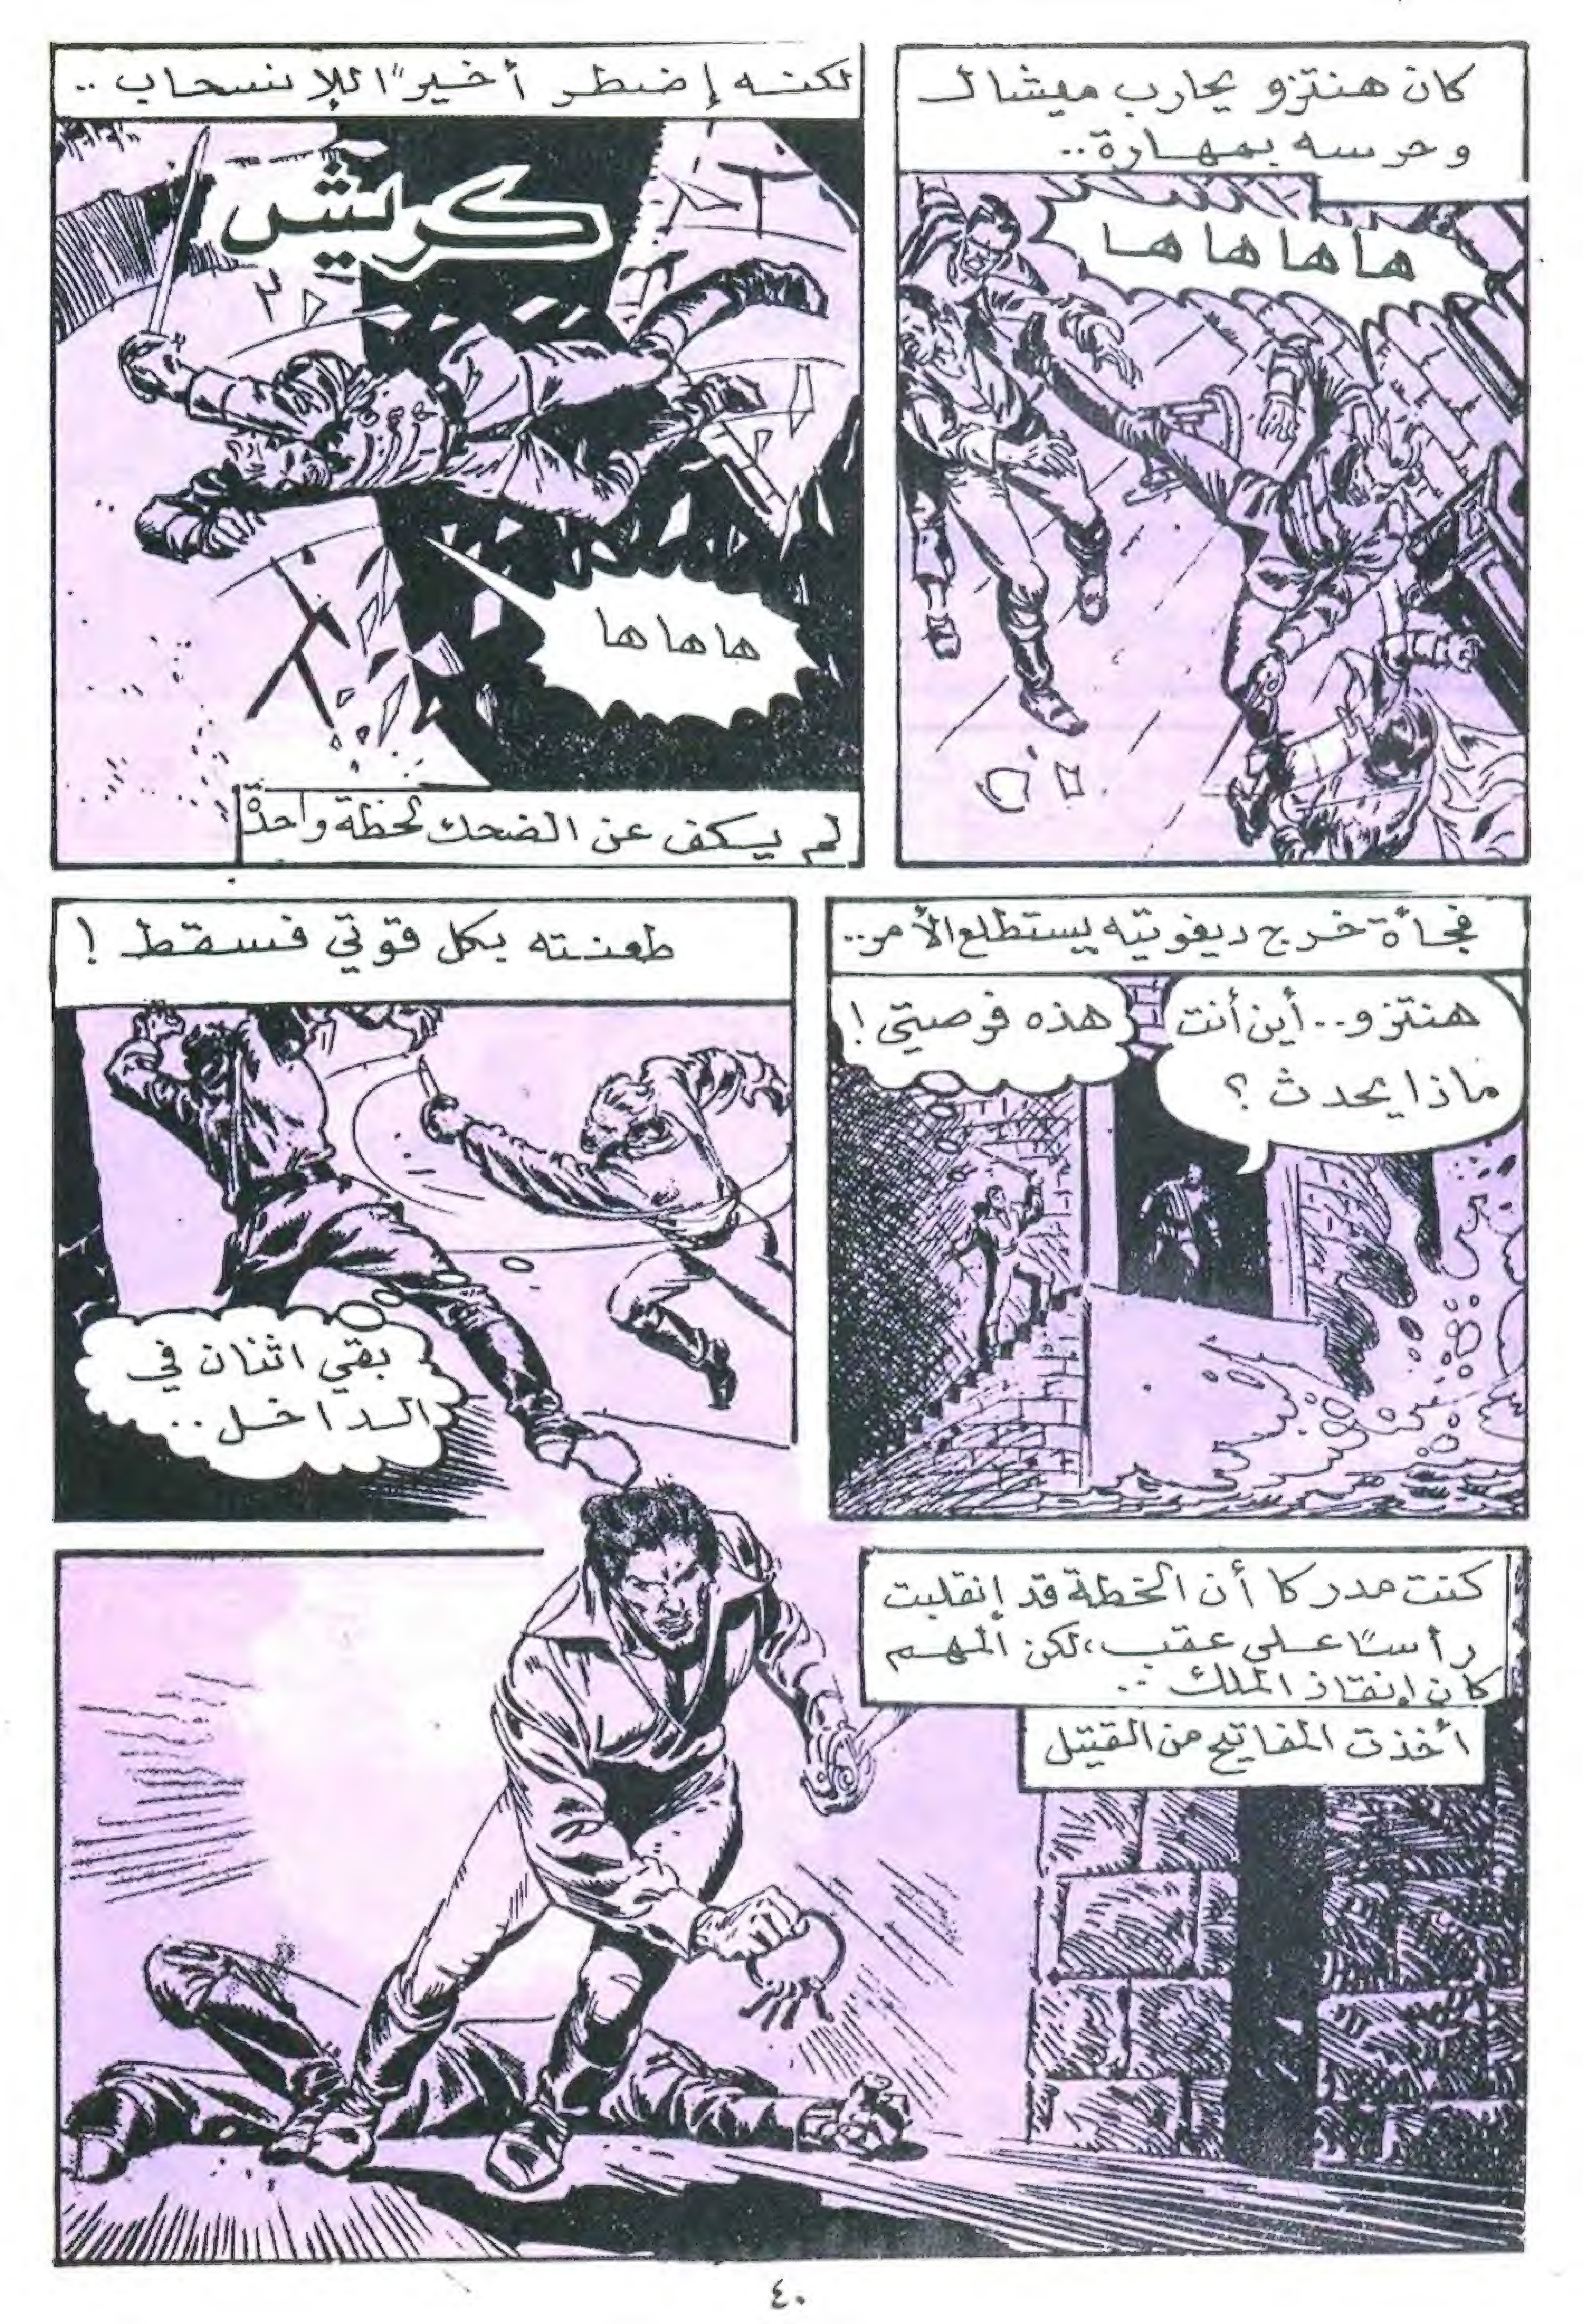 كان هنتزو يحارب ميشال
وحرسه بمهارة..
ها ها ها ها
لكنه إضطر أخيراً للإنسحاب ..
كريش
ها ها ها
لم يكف عن الضحك لحظة واحدة
فجأة خرج ديفونيه يستطلع الأمر..
هنتزو.. أين أنت
ماذا يحدث ؟
هذه فرصتي !
طعنته بكل قوتي فسقط !
بقي اثنان في
الداخل ..
كنت مدركا أن الخطة قد إنقلبت
رأساً على عقب، لكن المهم
كان إنقاذ الملك ..
أخذت المفاتيح من القتيل
٤٠